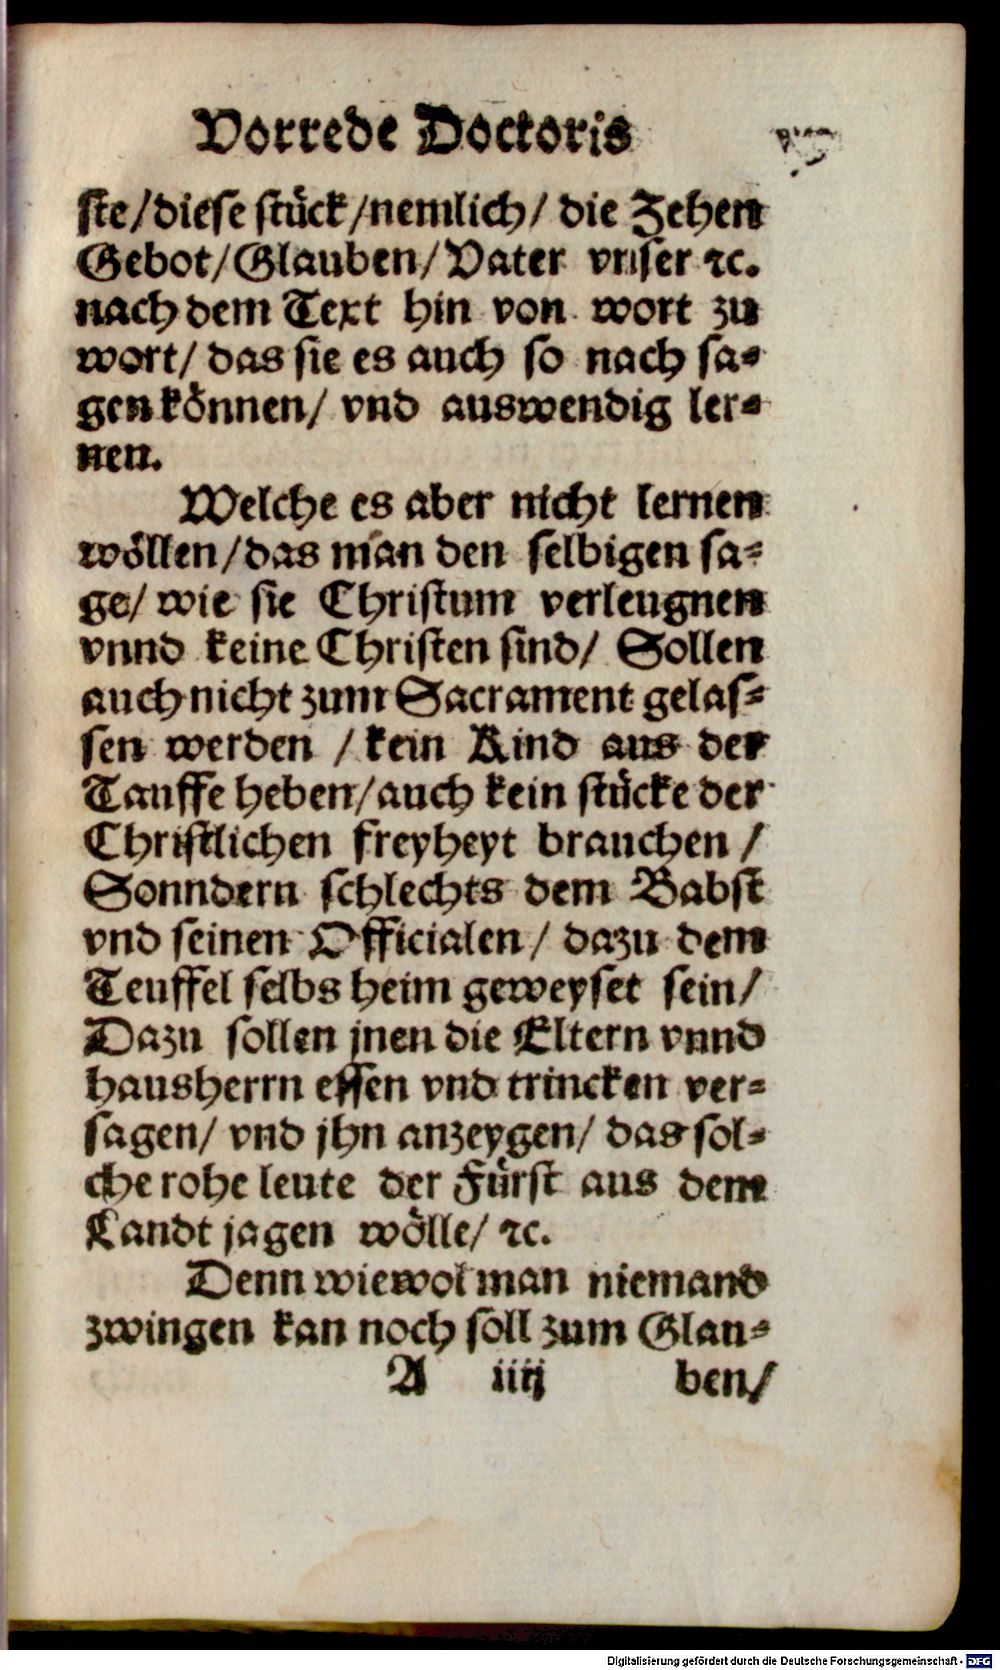 Vorrede Doctoris
ste/diese stück/nemlich/ die Zehen
Gebot/Glauben/Vater vnser ꝛc.
nach dem Text hin von wort zu
wort/ das sie es auch so nach sa⸗
gen können/ vnd auswendig ler⸗
nen.
Welche es aber nicht lernen
wöllen/das man den selbigen sa⸗
ge/ wie sie Christum verleugnen
vnnd keine Christen sind/ Sollen
auch nicht zum Sacrament gelas⸗
sen werden /kein Kind aus der
Tauffe heben/auch kein stücke der
Christlichen freyheyt brauchen /
Sonndern schlechts dem Babst
vnd seinen Officialen/ dazu dem
Teuffel selbs heim geweyset sein/
Dazu sollen jnen die Eltern vnnd
hausherrn essen vnd trincken ver⸗
sagen/ vnd jhn anzeygen/ das sol⸗
che rohe leute der Fürst aus dem
Landt jagen wölle/ ꝛc.
Denn wiewol man niemand
zwingen kan noch soll zum Glau⸗
A iiij ben/
Digitalisierung gefördert durch die Deutsche Forschungsgemeinschaft - DFG